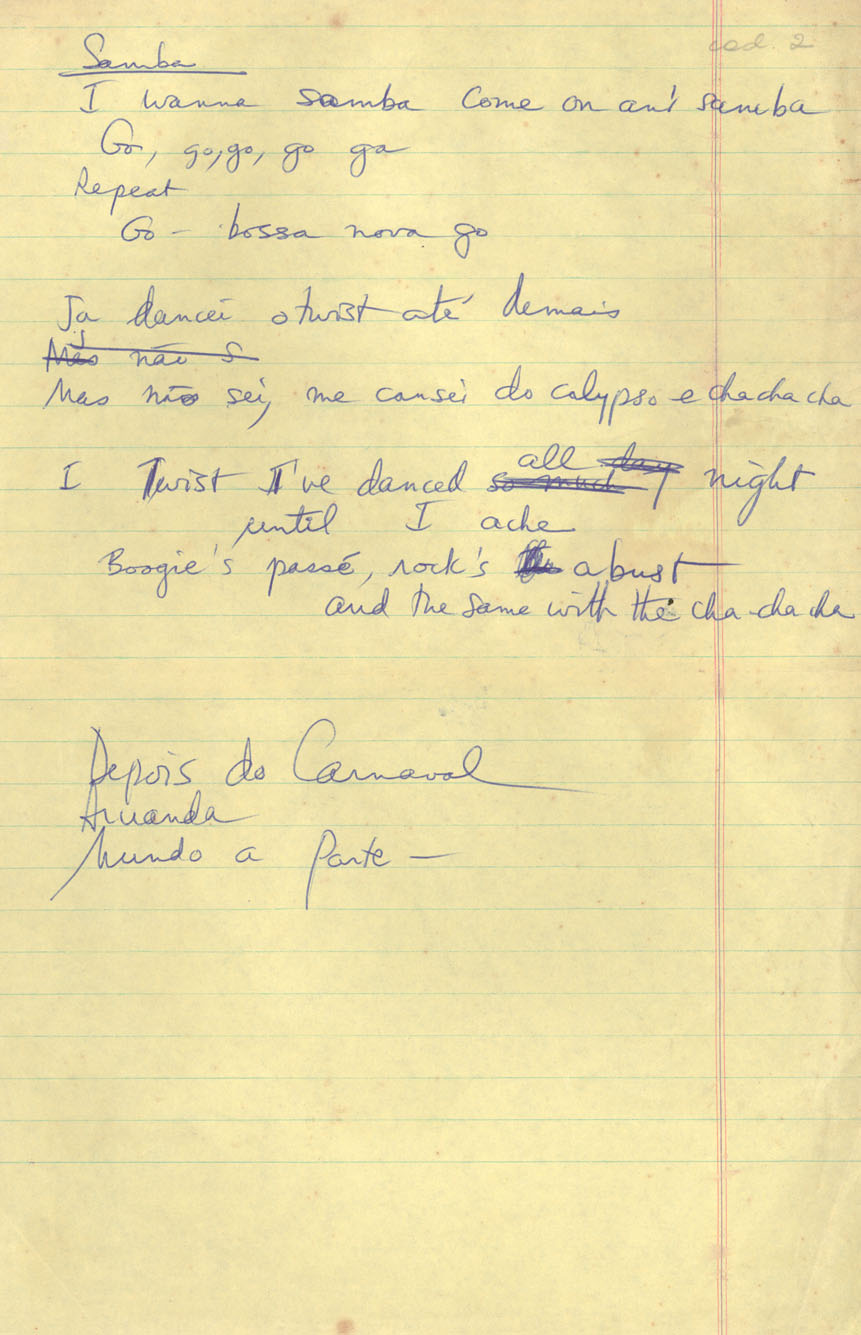 cod. 2
Samba
I wanna samba come on an' samba
Go, go, go, go go
Repeat
Go - bossa nova go
Ja dancei o twist até demais
Mas não s
Mas não sei, me cansei do calypso e chachacha
I Twist I've danced so much all day night
until I ache
Boogie's passé, rock's a bust
and the same with the cha-cha cha
Depois do Carnaval
Aruanda
Mundo a Parte -